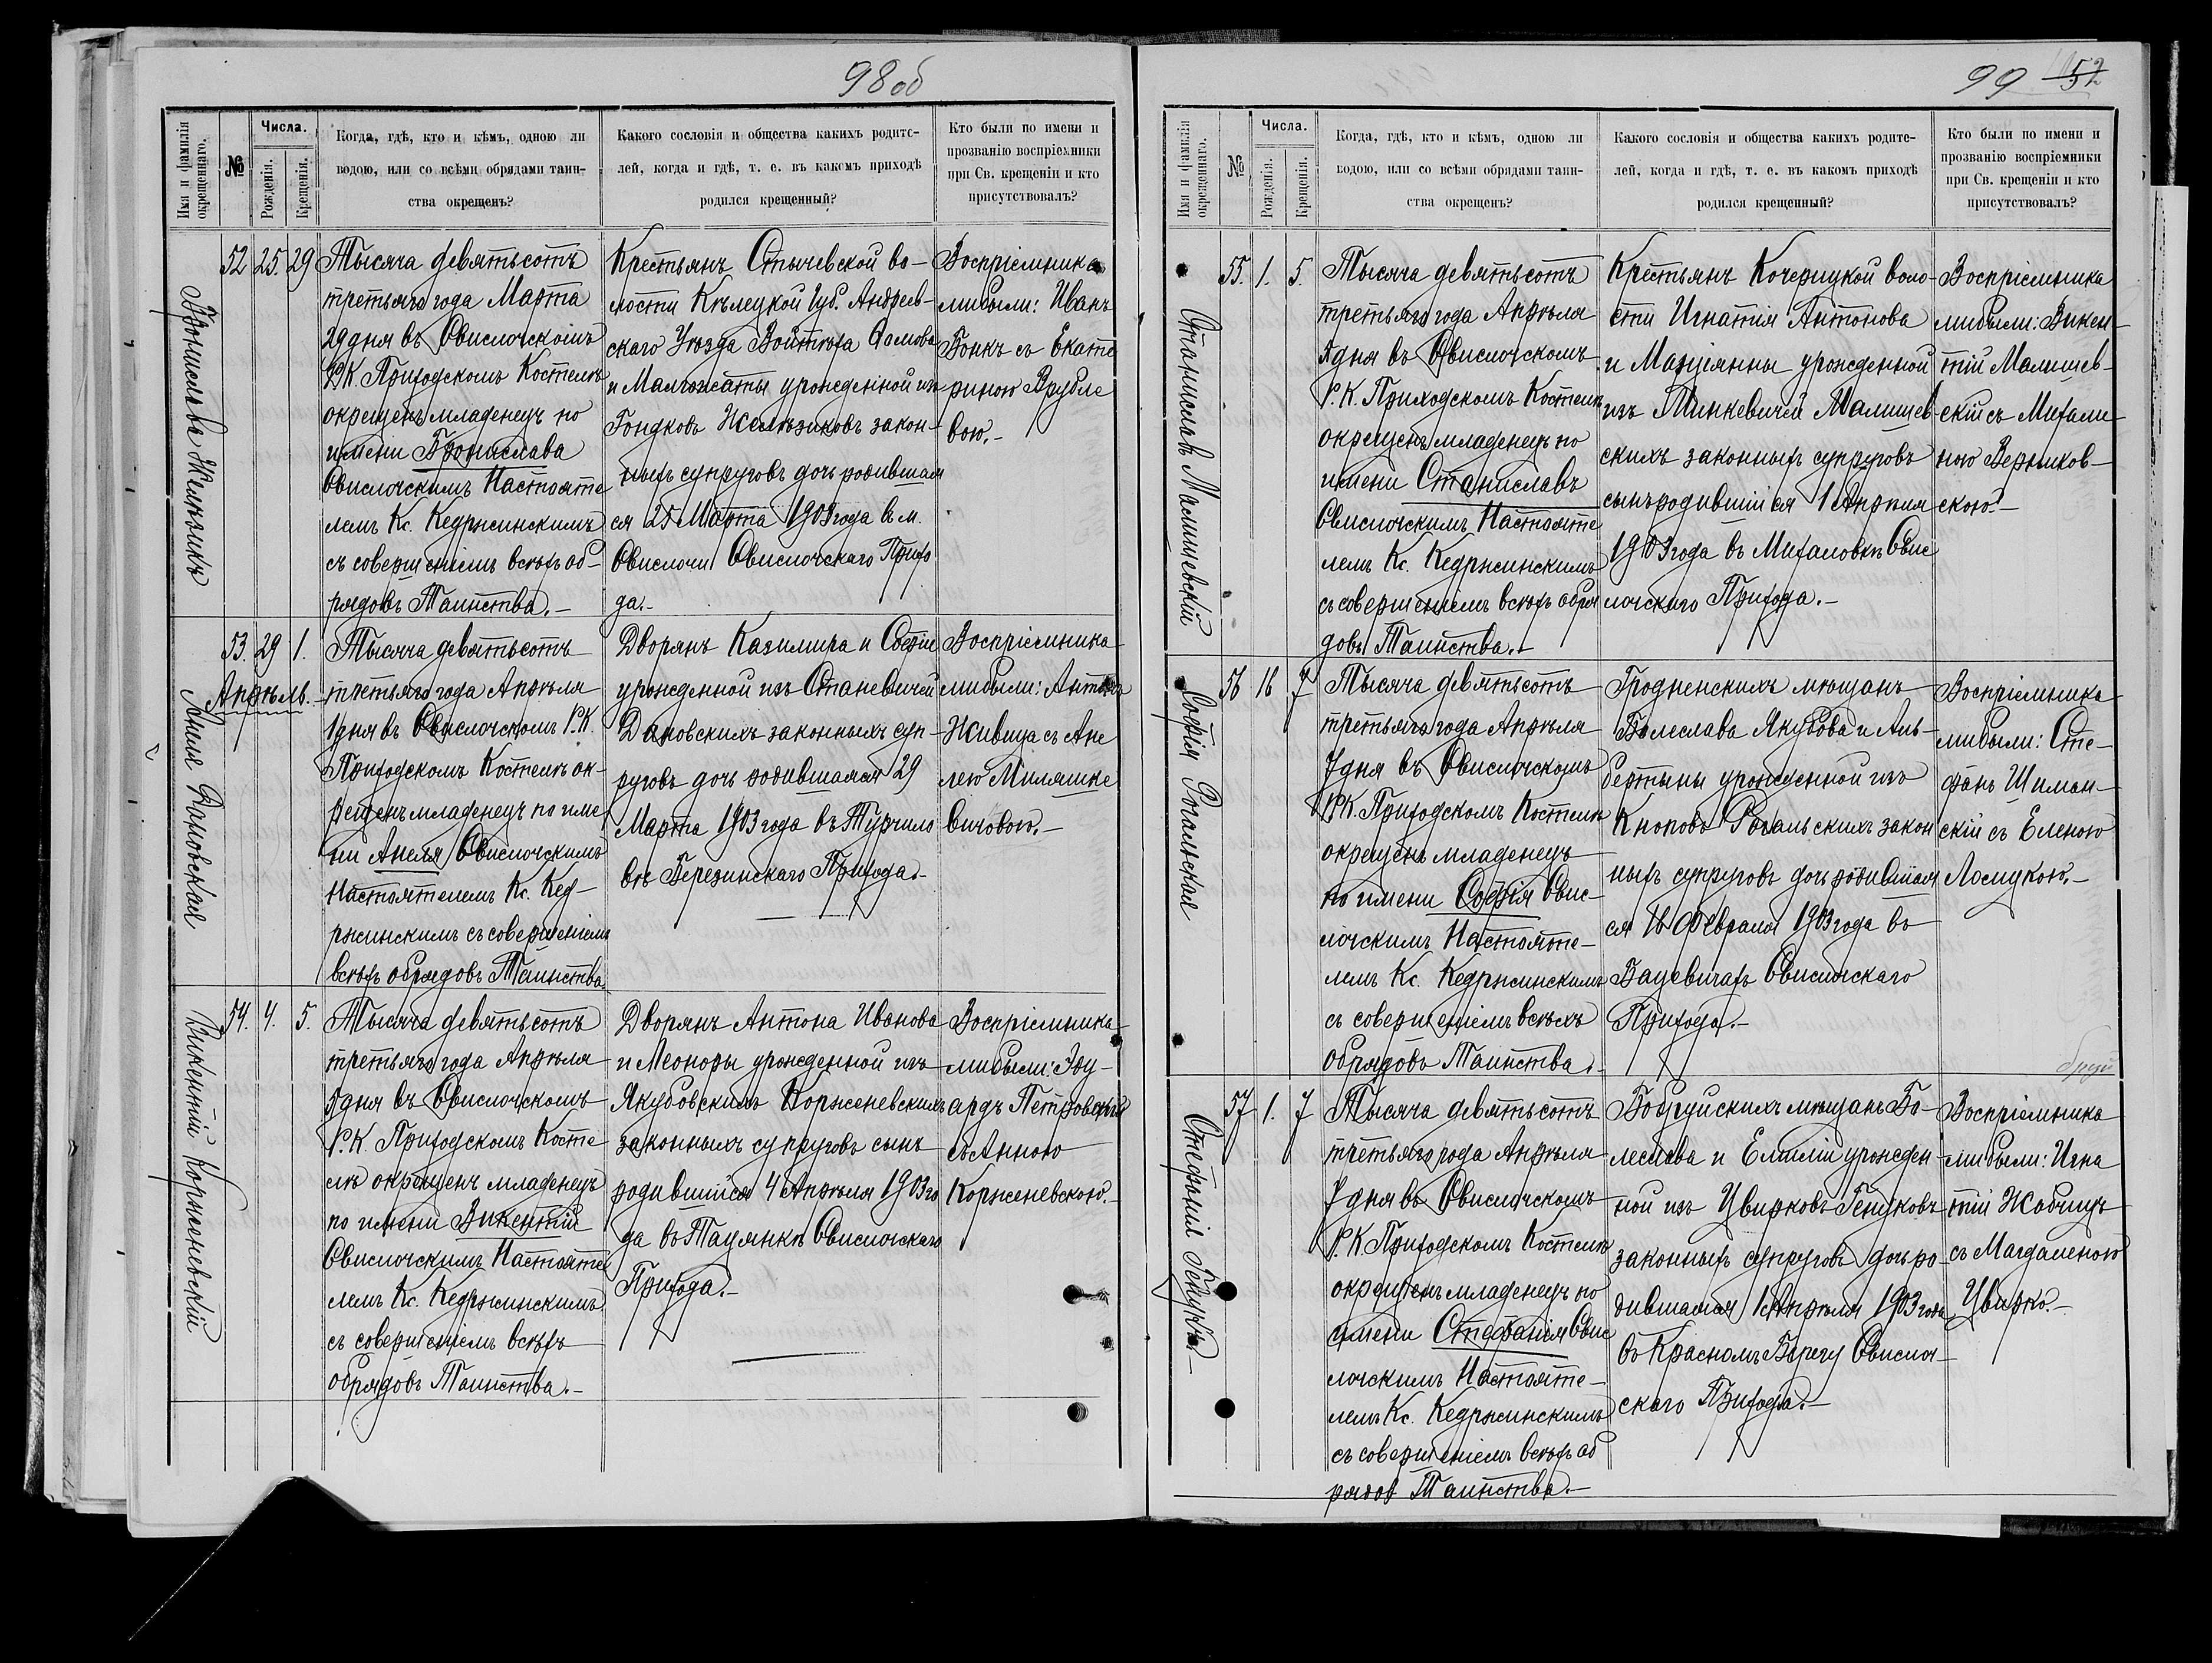 98 об
Имя и фамилія окрещеннаго.
№
Числа.
Рожденія.
Крещенія.
Когда, гдѣ, кто и кѣмъ, одною ли
водою, или со всѣми обрядами таин-
ства окрещенъ?
Какого сословія и общества какихъ родите-
лей, когда и гдѣ, т. е. въ какомъ приходѣ
родился крещенный?
Кто были по имени и
прозванію воспріемники
при Св. крещеніи и кто
присутствовалъ?
Бронислава Желѣзикъ
52 25. 29
Тысяча девятьсотъ
третьяго года Марта
29 дня въ Свислочскомъ
Р.К. Приходскомъ Костелѣ
окрещенъ младенецъ по
имени Бронислава
Свислочскимъ Настояте
лемъ Кс. Кедржинскимъ
съ совершеніемъ всѣхъ об-
рядовъ Таинства.-
Крестьянъ во-
лости Кѣлецкой Губ. Андреев-
скаго Уѣзда Войтѣха
и Малгожаты урожденной изъ
Гондковъ Желѣзиковъ закон-
ныхъ супруговъ дочь родившая
ся 25 Марта 1903 года въ м.
Свислочи Свислочскаго Прихо
да.-
Воспріемника
ми были: Иванъ
Бонкъ съ Екате
риною Врубле
вою.-
Анеля Дановская
53. 29 1.
Апрѣль.
Тысяча девятьсотъ
третьяго года Апрѣля
1 дня въ Свислочскомъ Р.К.
Приходскомъ Костелѣ ок-
рещенъ младенецъ по име
ни Анеля Свислочскимъ
Настоятелемъ Кс. Кед-
ржинскимъ съ совершеніемъ
всѣхъ обрядовъ Таинства.
Дворянъ Казимира и Софіи
урожденной изъ Станевичей
Дановскихъ законныхъ суп-
руговъ дочь родившаяся 29
Марта 1903 года въ Турчило
вкѣ Березинскаго Прихода.-
Воспріемника
ми были: Антонъ
Живица съ Ане
лею Миляшке
вичовою.-
Викентій Корженевскій
54. 4. 5.
Тысяча девятьсотъ
третьяго года Апрѣля
5 дня въ Свислочскомъ
Р.К. Приходскомъ Косте
лѣ окрещенъ младенецъ
по имени Викентій
Свислочскимъ Настояте
лемъ Кс. Кедржинскимъ
съ совершеніемъ всѣхъ
обрядовъ Таинства.-
Дворянъ Антона Иванова
и Леоноры урожденной изъ
Якубовскихъ Корженевскихъ
законныхъ супруговъ сынъ
родившійся 4 Апрѣля 1903 го
да въ Тацянкѣ Свислочскаго
Прихода.-
Воспріемника
ми были: Эду-
ардъ Петровскій
съ Анною
Корженевскою.-
99 52
Имя и фамилія окрещеннаго.
№
Числа.
Рожденія.
Крещенія.
Когда, гдѣ, кто и кѣмъ, одною ли
водою, или со всѣми обрядами таин-
ства окрещенъ?
Какого сословія и общества какихъ родите-
лей, когда и гдѣ, т. е. въ какомъ приходѣ
родился крещенный?
Кто были по имени и
прозванію воспріемники
при Св. крещеніи и кто
присутствовалъ?
Станиславъ Малишевскій
55. 1. 5.
Тысяча девятьсотъ
третьяго года Апрѣля
5 дня въ Свислочскомъ
Р.К. Приходскомъ Костелѣ
окрещенъ младенецъ по
имени Станиславъ
Свислочскимъ Настояте
лемъ Кс. Кедржинскимъ
съ совершеніемъ всѣхъ обря
довъ Таинства.-
Крестьянъ Кочерицкой воло-
сти Игнатія Антонова
и Маціянны урожденной
изъ Минкевичей Малишев-
скихъ законныхъ супруговъ
сынъ родившійся 1 Апрѣля
1903 года въ Михаловкѣ Свис
лочскаго Прихода.-
Воспріемника
ми были: Викен-
тій Малишев-
скій съ Михали-
ною Верников-
скою.-
Софія Рогальская
56 16 7
Тысяча девятьсотъ
третьяго года Апрѣля
7 дня въ Свислочскомъ
Р.К. Приходскомъ Костелѣ
окрещенъ младенецъ
по имени Софія Свис-
лочскимъ Настояте-
лемъ Кс. Кедржинскимъ
съ совершеніемъ всѣхъ
обрядовъ Таинства.-
Гродненскихъ мѣщанъ
Болеслава Якубова и Аль-
бертины урожденной изъ
Кноповъ Рогальскихъ закон
ныхъ супруговъ дочь родившая
ся 16 Февраля 1903 года въ
Бацевичахъ Свислочскаго
Прихода.-
Воспріемника
ми были: Сте-
фанъ Шиман-
скій съ Еленою
Лосицкою.-
Стефанія Генцукъ
57 1. 7
Тысяча девятьсотъ
третьяго года Апрѣля
7 дня въ Свислочскомъ
Р.К. Приходскомъ Костелѣ
окрещенъ младенецъ по
имени Стефанія Свис
лочскимъ Настояте-
лемъ Кс. Кедржинскимъ
съ совершеніемъ всѣхъ об
рядовъ Таинства.-
Бобруйскихъ мѣщанъ Бо-
леслава и Емиліи урожден-
ной изъ Цвирковъ
законныхъ супруговъ дочь ро-
дившаяся 1 Апрѣля 1903 года
въ Красномъ Берегу Свислоч-
скаго Прихода.-
Воспріемника
ми были: Игна
тій Жабчицъ
съ Магдаленою
Цвирко.-